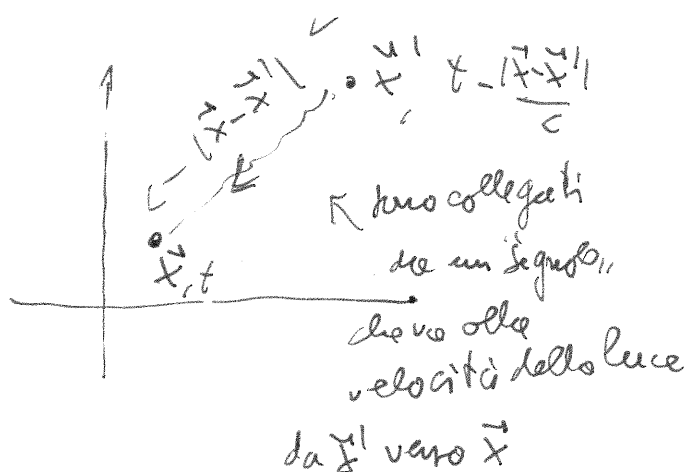 |x⃗-x⃗'|
x⃗', t - |x⃗-x⃗'|/c
x⃗, t
sono collegati
da un segnale
che va alla
velocità della luce
da x⃗' verso x⃗